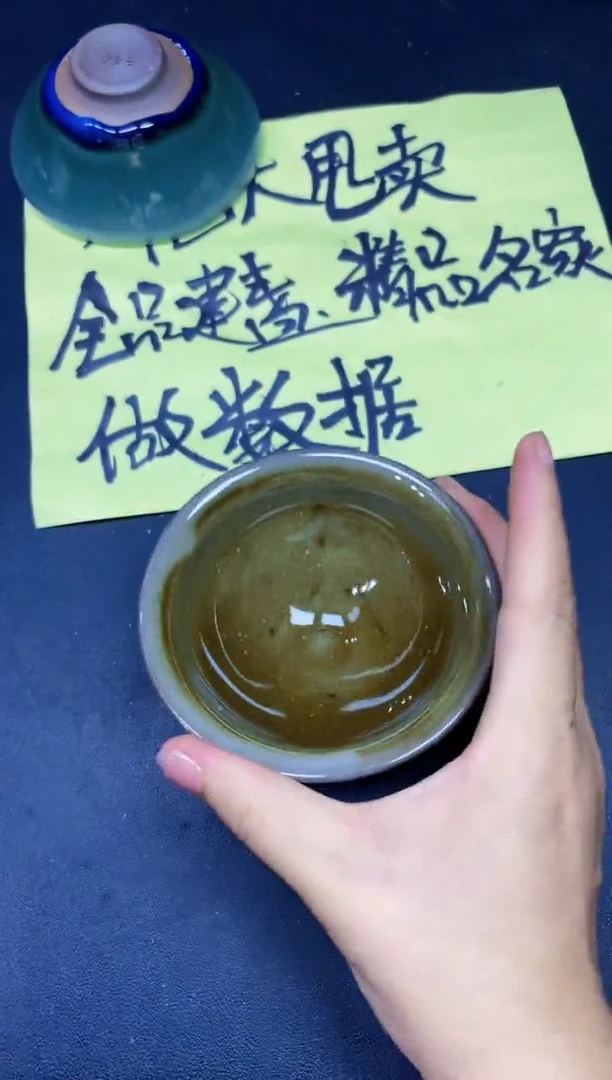 大甩卖
全品建盏、精品名家
做数据